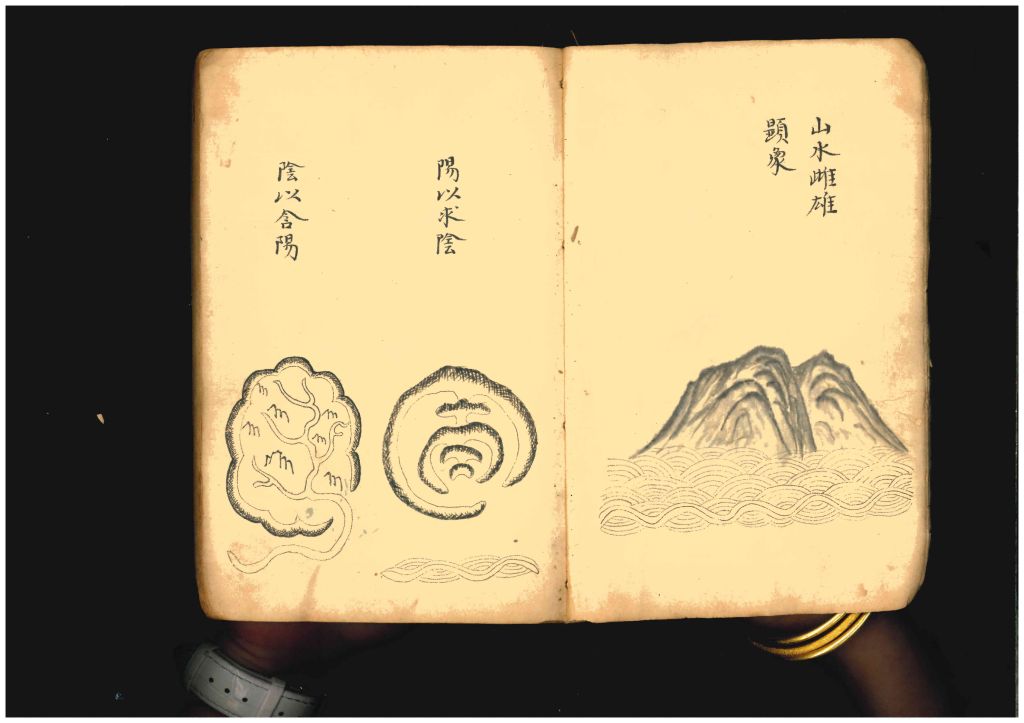 山水雌雄
顕象
陽以求陰
陰以含陽